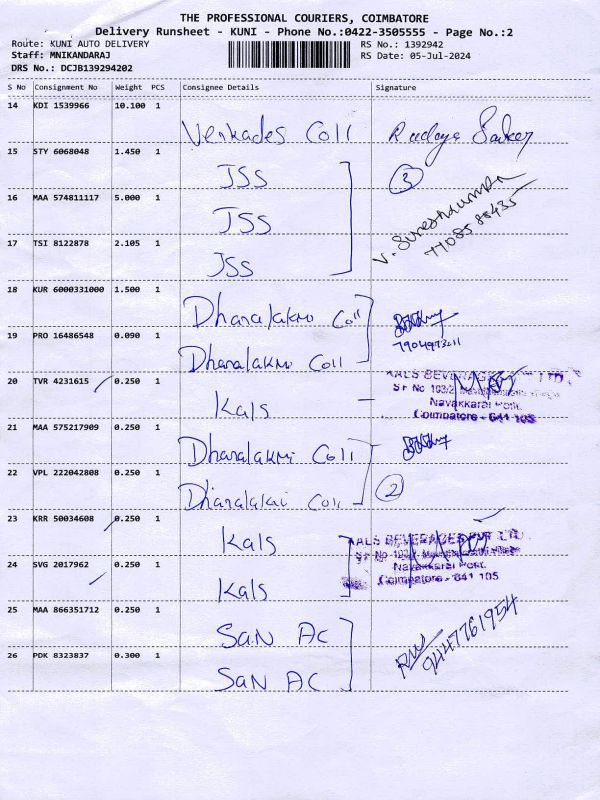 THE PROFESSIONAL COURIERS, COIMBATORE
Delivery Runsheet - KUNI - Phone No.:0422-3505555 - Page No.:2
Route: KUNI AUTO DELIVERY RS No.: 1392942
Staff: MNIKANDARAJ RS Date: 05-Jul-2024
DRS No.: DCJB139294202
S No Consignment No Weight PCS Consignee Details Signature
14 KDI 1539966 10.100 1 Venkades Coll
15 STY 6068048 1.450 1 JSS 3
16 MAA 574811117 5.000 1 JSS
7708588435
17 TSI 8122878 2.105 1 JSS
18 KUR 6000331000 1.500 1 Dhanalakmi Coll
7904973211
19 PRO 16486548 0.090 1 Dhanalakmi Coll
20 TVR 4231615 0.250 1 Kals
KALS BEVERAGES LTD
S F No 103/2
Navakkarai Post.
Coimbatore - 641 105
21 MAA 575217909 0.250 1 Dhanalakmi Coll
22 VPL 222042808 0.250 1 Dhanalakmi Coll 2
23 KRR 50034608 0.250 1 Kals
KALS BEVERAGES PVT LTD
S F No
Navakkarai Post.
Coimbatore - 641 105
24 SVG 2017962 0.250 1 Kals
25 MAA 866351712 0.250 1 SAN AC
9447761954
26 PDK 8323837 0.300 1 SAN AC